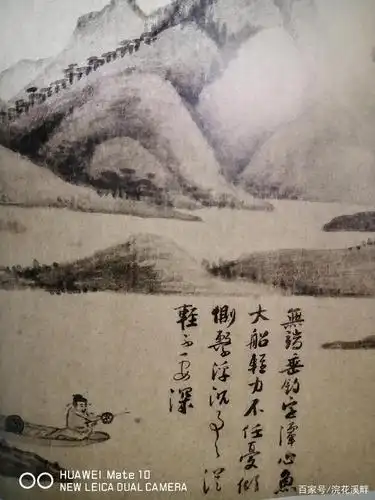 無端垂釣空潭心魚
大船輕力不任憂傾
側繫浮沉事〻從
輕不要深
HUAWEI Mate 10
NEW LEICA DUAL CAMERA
百家号/浣花溪畔